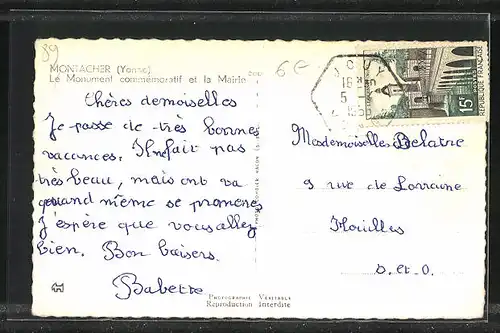 89
MONTACHER (Yonne)
Le Monument commémoratif et la Mairie
6€
Chères demoiselles
Je passe de très bonnes
vacances. Il ne fait pas
très beau, mais on va
quand même se promener
J'espère que vous allez
bien. Bon baisers.
Babette
JOUY
15F
POSTES
REPUBLIQUE FRANÇAISE
Mademoiselles Delatre
9 rue de Lorraine
Houilles
S. et. O.
PHOTOGRAPHIE VÉRITABLE
Reproduction Interdite